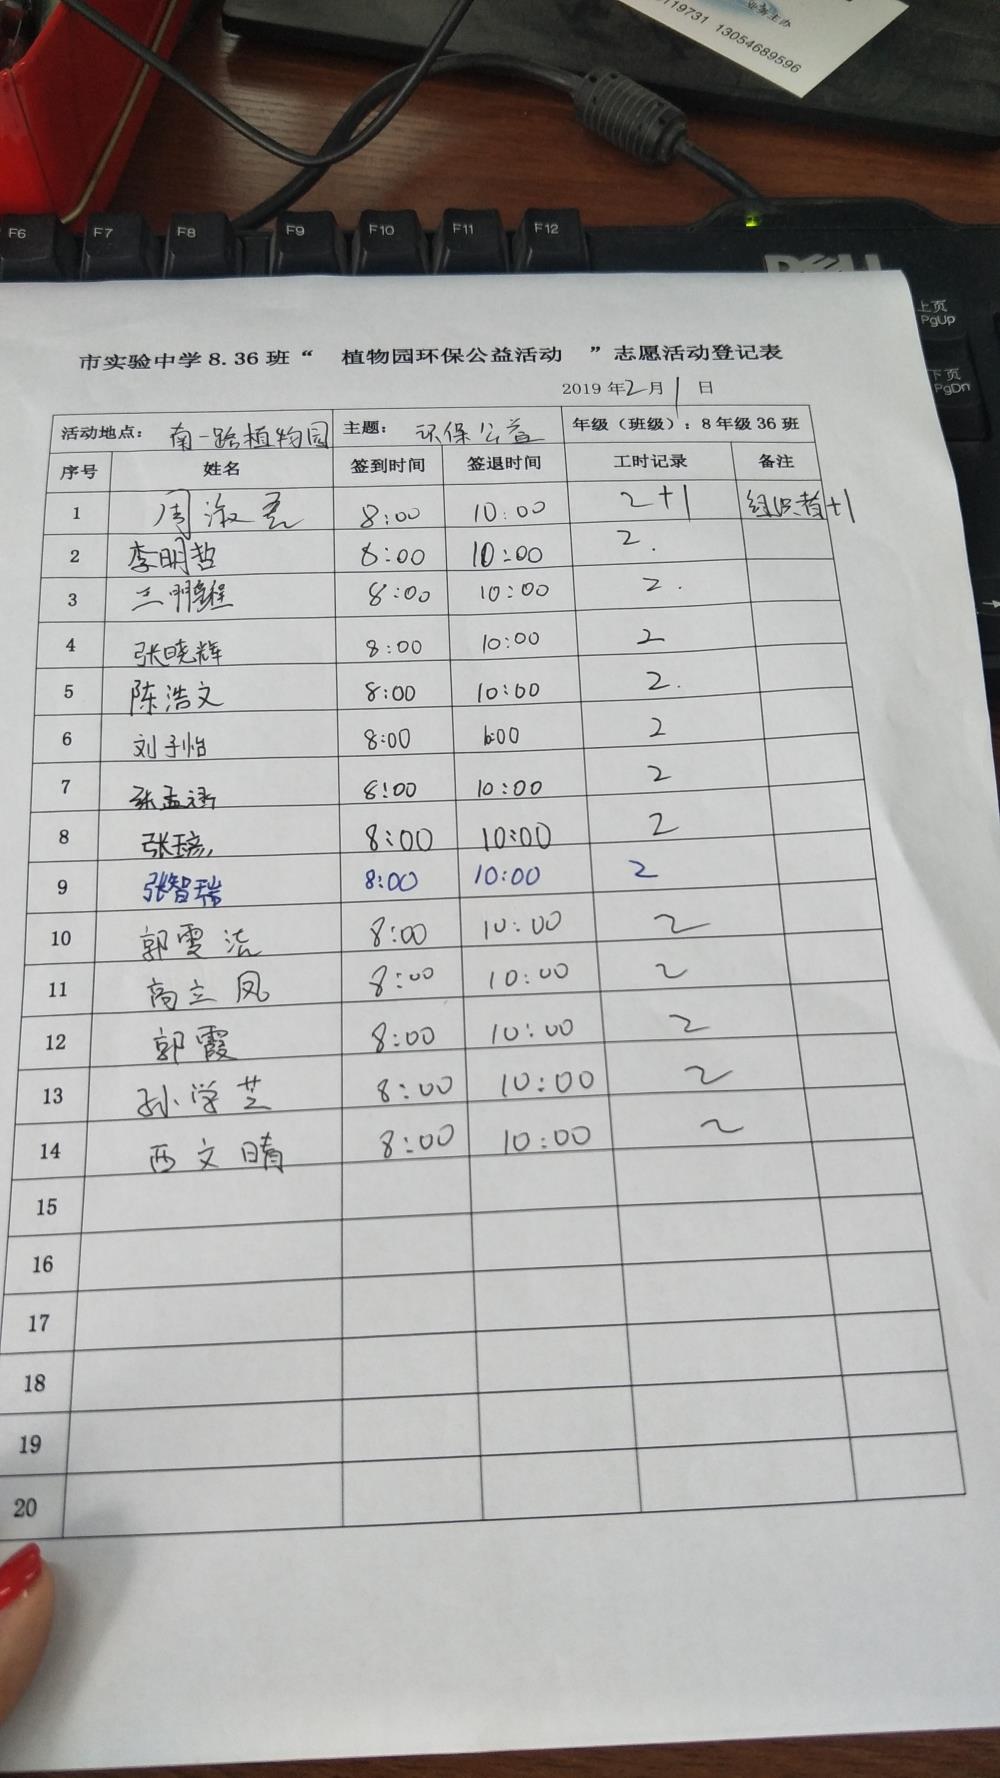 业务主办
119731 13054689596
F6 F7 F8 F9 F10 F11 F12
DELL
上页
PgUp
下页
PgDn
市实验中学8.36班“ 植物园环保公益活动 ”志愿活动登记表
2019年2月1日
活动地点: 南一路植物园 主题: 环保公益 年级（班级）: 8年级36班
序号 姓名 签到时间 签退时间 工时记录 备注
1 周淑 8:00 10:00 2+1 组织者+1
2 李明哲 8:00 10:00 2.
3 8:00 10:00 2.
4 张晓辉 8:00 10:00 2
5 陈浩文 8:00 10:00 2.
6 刘子怡 8:00 10:00 2
7 张孟涵 8:00 10:00 2
8 张 8:00 10:00 2
9 张智瑞 8:00 10:00 2
10 郭雯 8:00 10:00 2
11 高立凤 8:00 10:00 2
12 郭霞 8:00 10:00 2
13 孙学芝 8:00 10:00 2
14 西文晴 8:00 10:00 2
15
16
17
18
19
20